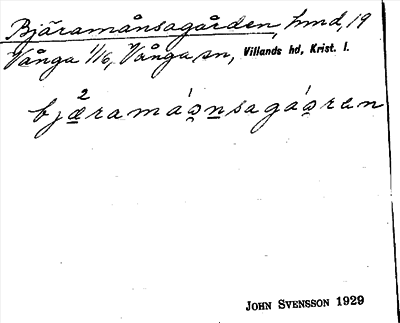 Bjäramånsagården, hmd, 19
Vånga 1/16, Vånga sn, Villands hd, Krist. l.
bjæ²ramá̊nsagá̊ren
JOHN SVENSSON 1929